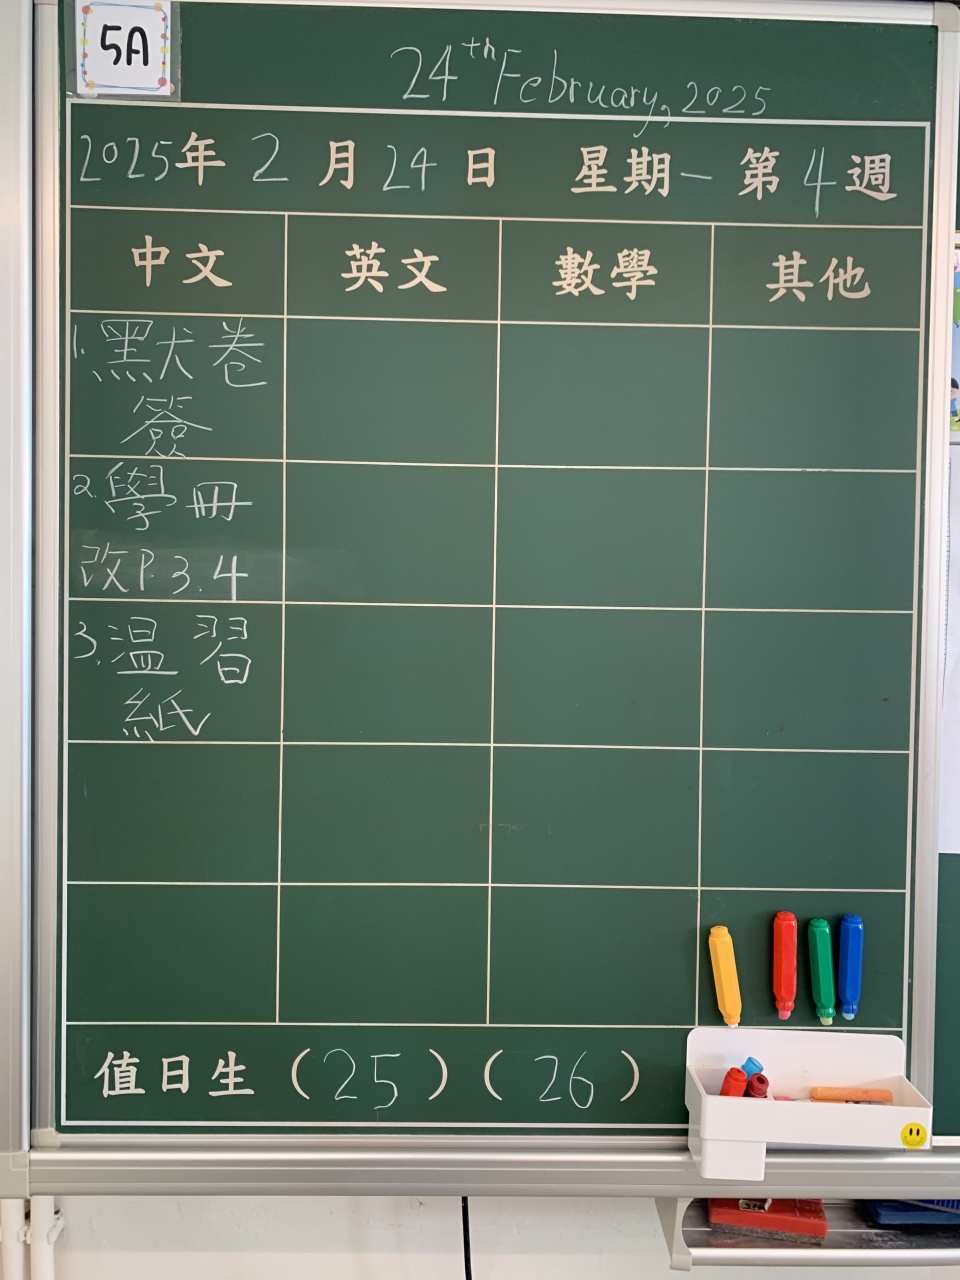 5A
24th February, 2025
2025年 2 月 24 日 星期一 第 4 週
中文 英文 數學 其他
1. 默卷
簽
2. 學冊
改P.3.4
3. 溫習
紙
值日生 (25) (26)